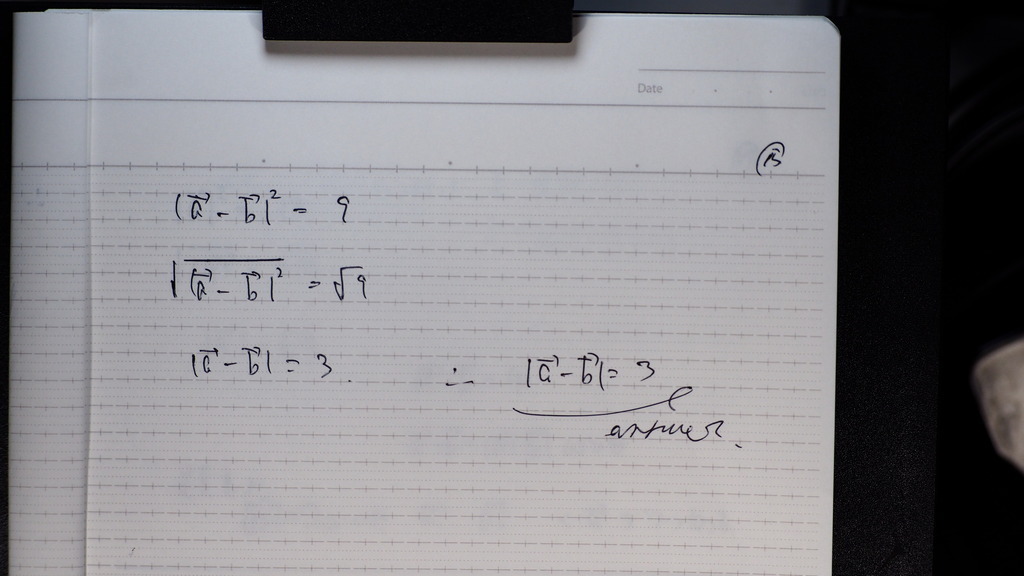 Date
B
|a⃗ - b⃗|² = 9
√|a⃗ - b⃗|² = √9
|a⃗ - b⃗| = 3. ∴ |a⃗ - b⃗| = 3
answer.